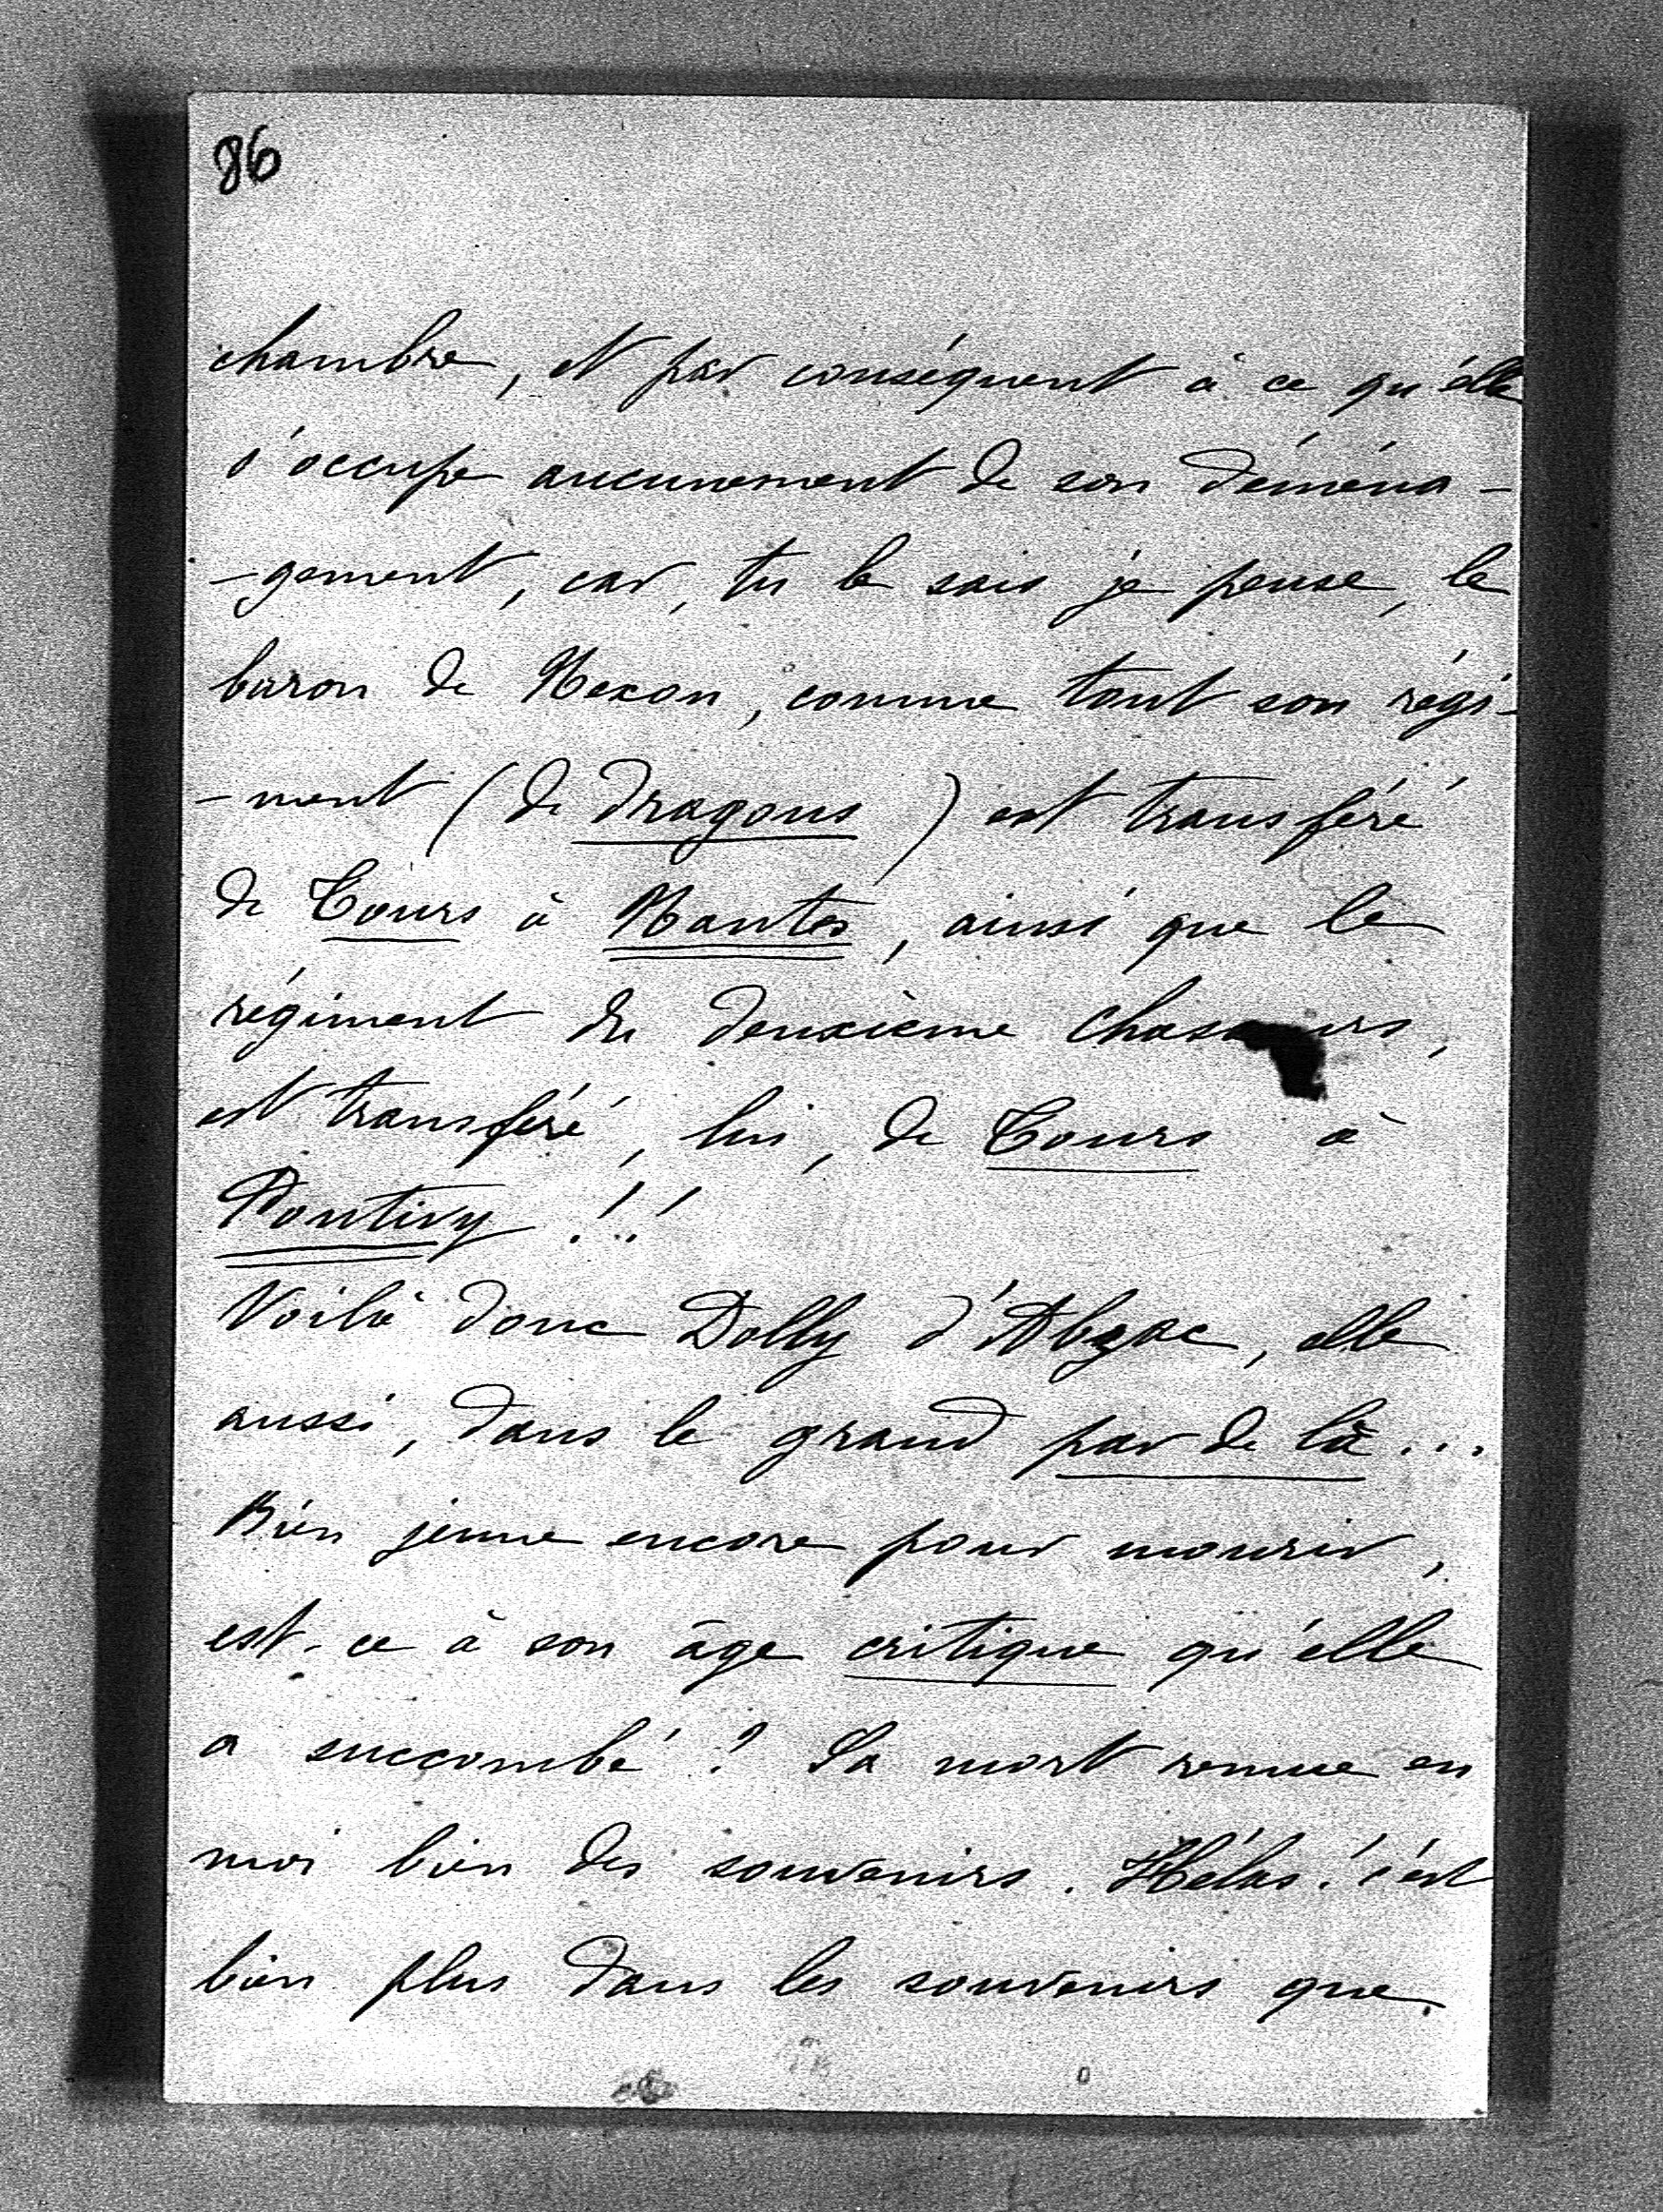 86
chambre, et par conséquent à ce qu'elle
s'occupe aucunement de son déména-
-gement, car, tu le sais je pense, le
baron de Nexon, comme tout son régi-
-ment (de dragons) est transféré
de Tours à Nantes, ainsi que le
régiment du deuxième chasseurs,
est transféré, lui, de Tours à
Pontivy !!
Voilà donc Dolly d'Abzac, elle
aussi, dans le grand par de là...
Bien jeune encore pour mourir,
est-ce à son âge critique qu'elle
a succombé ? Sa mort remue en
moi bien des souvenirs. Hélas ! c'est
bien plus dans les souvenirs que